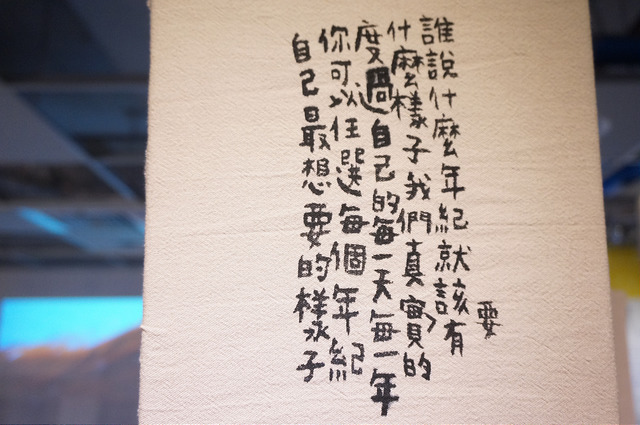 誰說什麼年紀就該要有
什麼樣子我們真實的
度過自己的每一天每一年
你可以任選每個年紀
自己最想要的樣子